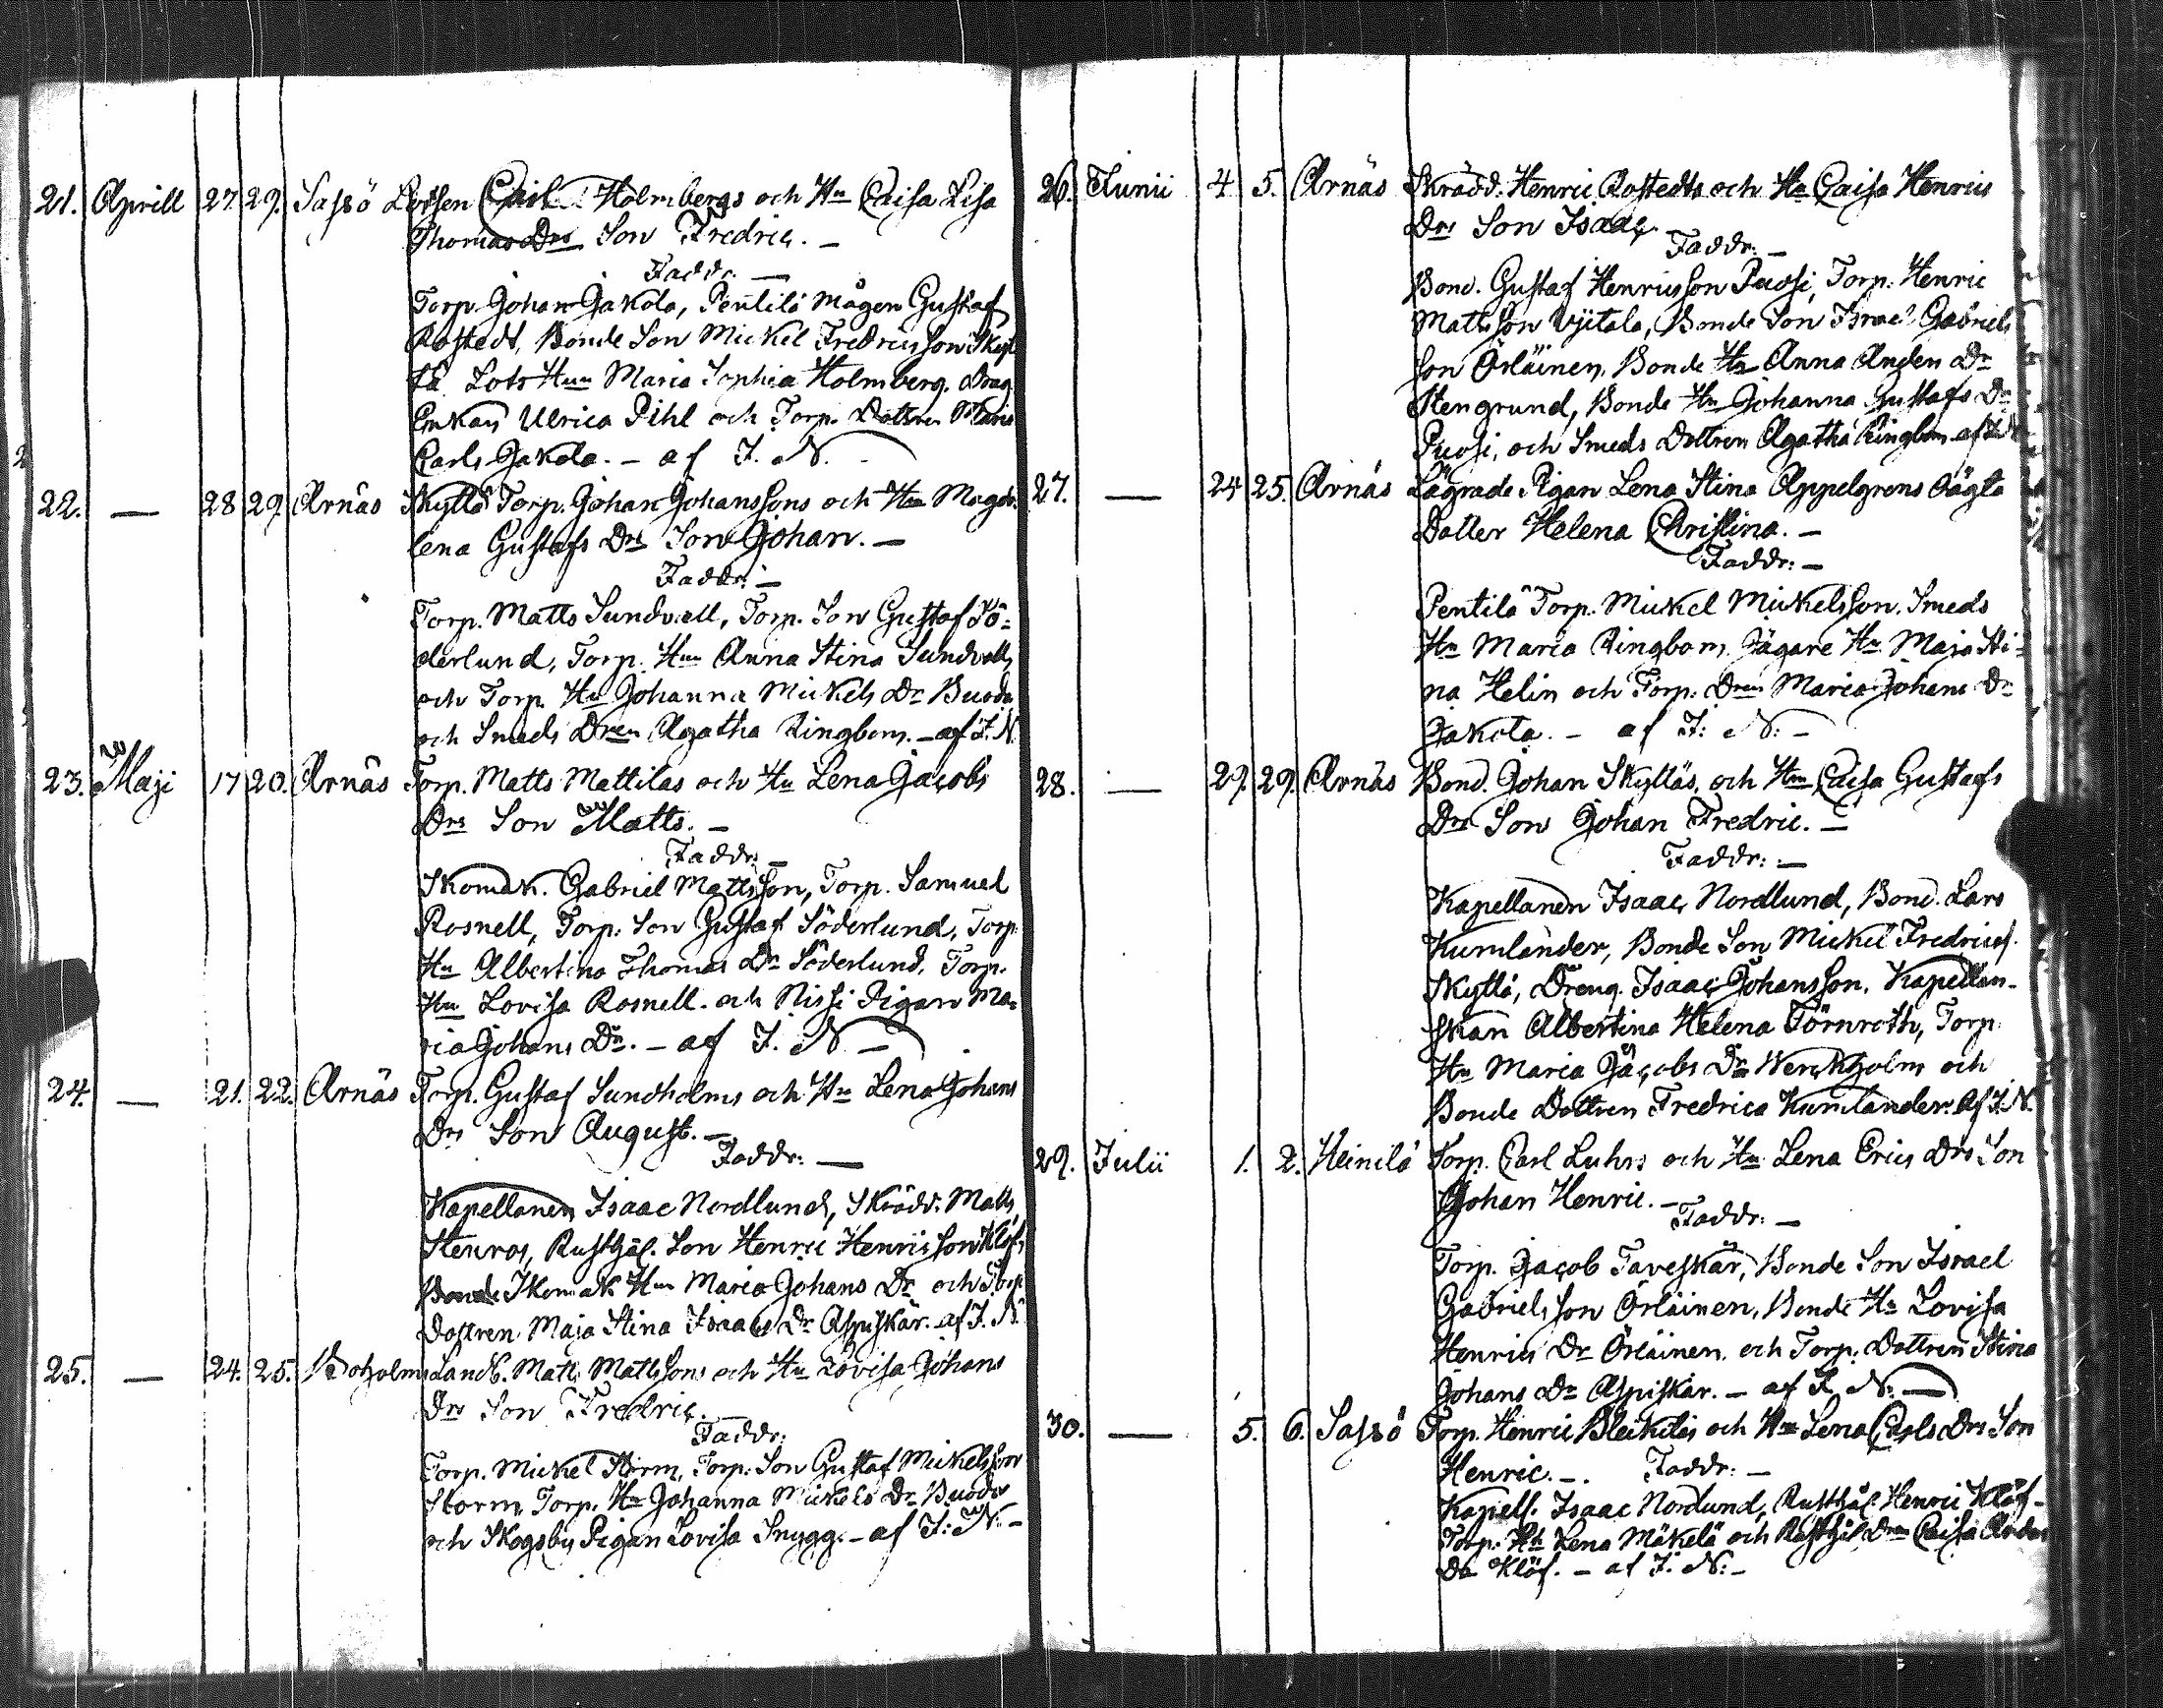 21. Aprill 27. 29. Sassö Lotsen Carl Holmbergs och Hu Caisa Lisa
Thomas Drs Son Fredric. —
Faddr. —
Torp. Johan Jakola, Pentilä Mågen Gustaf
Rostedt, Bonde Son Mickel Fredricsson Skyt
tä Lots Hun Maria Sophia Holmberg. Drag.
Enkan Ulrica Pihl och Torp. Dottren Maria
Carls Jakola. — af J. N.
22. — 28 29. Arnäs Skyttä Torp. Johan Johanssons och Hu Magda=
lena Gustafs Drs Son Johan. —
Faddr: —
Torp. Matts Sundvall, Torp. Son Gustaf Sö=
derlund, Torp. Hun Anna Stina Sundvall,
och Torp. Hu Johanna Mickels Dr Buoda
och Smeds Dren Agatha Ringbom. — af J. N.
23. Maji 17 20. Arnäs Torp. Matts Mattilas och Hu Lena Jacobs
Drs Son Matts. —
Faddr: —
Skomak. Gabriel Mattsson, Torp. Samuel
Rosnell, Torp. Son Gustaf Söderlund, Torp.
Hu Albertina Thomas Dr Söderlund, Torp.
Hu Lovisa Rosnell. och Nissi Pigan Ma=
ria Johans Dr. — af J. N. —
24. — 21. 22. Arnäs Torp. Gustaf Sundholms och Hu Lena Johans
Drs Son August. —
Faddr: —
Kapellanen Isaac Nordlund, Skrädd: Matts
Stenros, Rusthål. Son Henric Henricsson Klöf,
Skomak Hun Maria Johans Dr och Torp.
Dottren Maja Stina Isaacs Dr Aspiskär. af J. N.
25. — 24. 25. Landb. Matts Mattssons och Hu Lovisa Johans
Drs Son Fredric.
Faddr:
Torp. Mickel Storm, Torp. Son Gustaf Mickelsson
Storm, Torp. Hu Johanna Mickels Dr Buoda
och Skogsby Pigan Lovisa Snygg. — af J: N: —
26. Junii 4 5. Arnäs Skrädd: Henric Rostedts och Hu Caisa Henrics
Drs Son Isaac.
Faddr: —
Bond. Gustaf Henricsson Puosi, Torp. Henric
Mattsson Ujitalo, Bonde Son Israel Gabriels
son Örläinen, Bonde Hu Anna Anders Dr
Stengrund, Bonde Hu Johanna Gustafs Dr
Puosi, och Smeds Dottren Agatha Ringbom af J. N.
27. — 24 25. Arnäs Lägrade Pigan Lena Stina Appelgrens oägta
Dotter Helena Christina. —
Faddr: —
Pentilä Torp. Mickel Mickelsson, Smeds
Hu Maria Ringbom, Jägare Hu Maja Sti=
na Helin och Torp. Dren Maria Johans Dr
Jakola. — af J: N: —
28. — 29. 29. Arnäs Bond. Johan Skyttäs, och Hun Caisa Gustafs
Drs Son Johan Fredric. —
Faddr: —
Kapellanen Isaac Nordlund, Bond. Lars
Kumlander, Bonde Son Mickel Fredricss.
Skyttä, Dreng. Isaac Johansson, Kapellan=
skan Albertina Helena Törnroth, Torp.
Hu Maria Jacobs Dr Werkholm och
Bonde Dottren Fredrica Kumlander. Af J. N.
29. Julii 1. 2. Heinilä Torp. Carl Luhrs och Hu Lena Erics Drs Son
Johan Henric. —
Faddr: —
Torp. Jacob Taveskär, Bonde Son Israel
Gabriels son Örläinen, Bonde Hu Lovisa
Henrics Dr Örläinen, och Torp. Dottren Stina
Johans Dr Aspiskär. — af J. N: —
30. — 5. 6. Sassö Torp. Henric Bleikiläs och Hu Lena Carls Drs Son
Henric. — . Faddr: —
Kapell. Isaac Nordlund, Rusthål. Henric Klöf —
Torp. Hu Lena Mäkelä och Rusthål Dren Caisa Anders
Dr Klöf. — af J. N: —